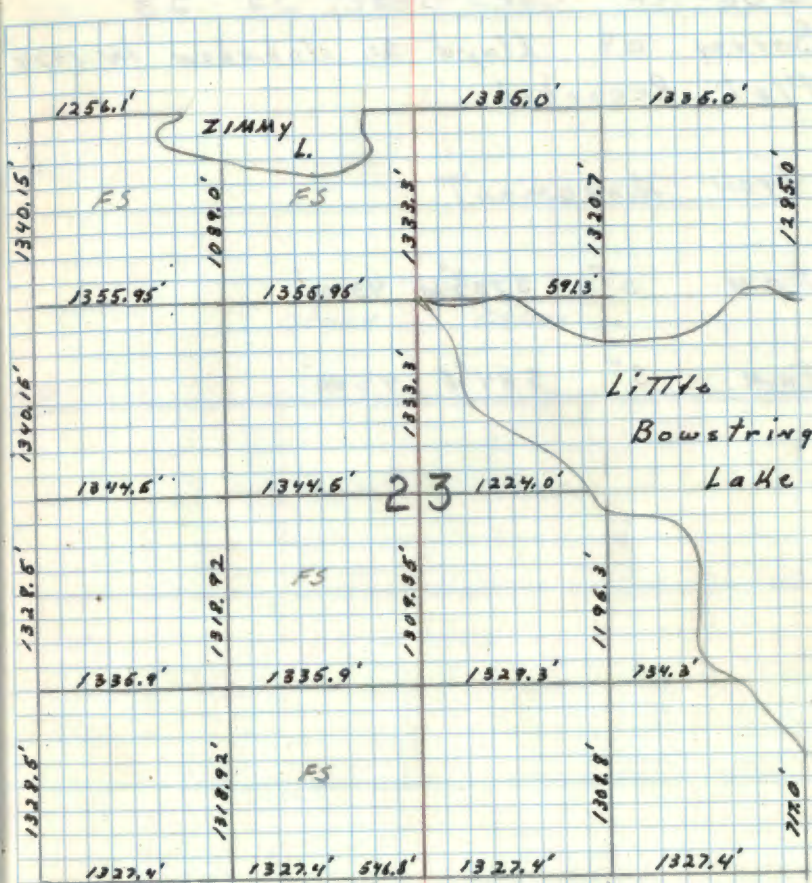 1256.1' 1335.0' 1335.0'
ZIMMY
L.
1340.15' FS 1089.0' FS 1333.3' 1320.7' 1285.0'
1355.95' 1355.95' 591.3
1340.15' 1333.3'
Little
Bowstring
Lake
1344.5' 1344.5' 23 1224.0'
1328.5' 1318.92 FS 1309.35' 1196.3'
1335.9' 1335.9' 1329.3' 734.3'
1328.5' 1318.92' FS 1308.8' 717.0'
1327.4' 1327.4' 546.8' 1327.4' 1327.4'